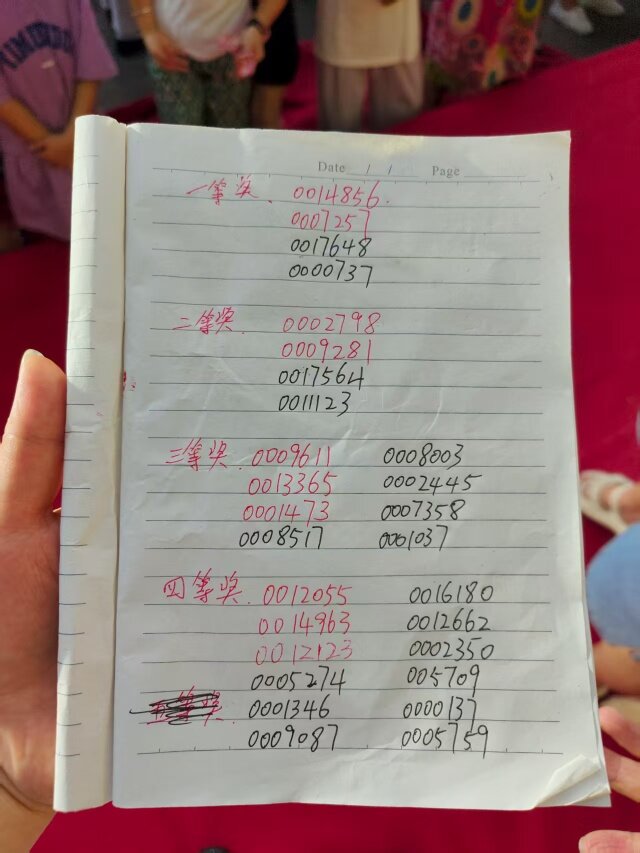 Date / / Page
一等奖. 0014856.
0007257
0017648
0000737
二等奖. 0002798
0009281
0017564
0011123
三等奖. 0009611 0008003
0013365 0002445
0001473 0007358
0008517 0001037
四等奖. 0012055 0016180
0014963 0012662
0012123 0002350
0005274 005709
0001346 0000137
0009087 0005759